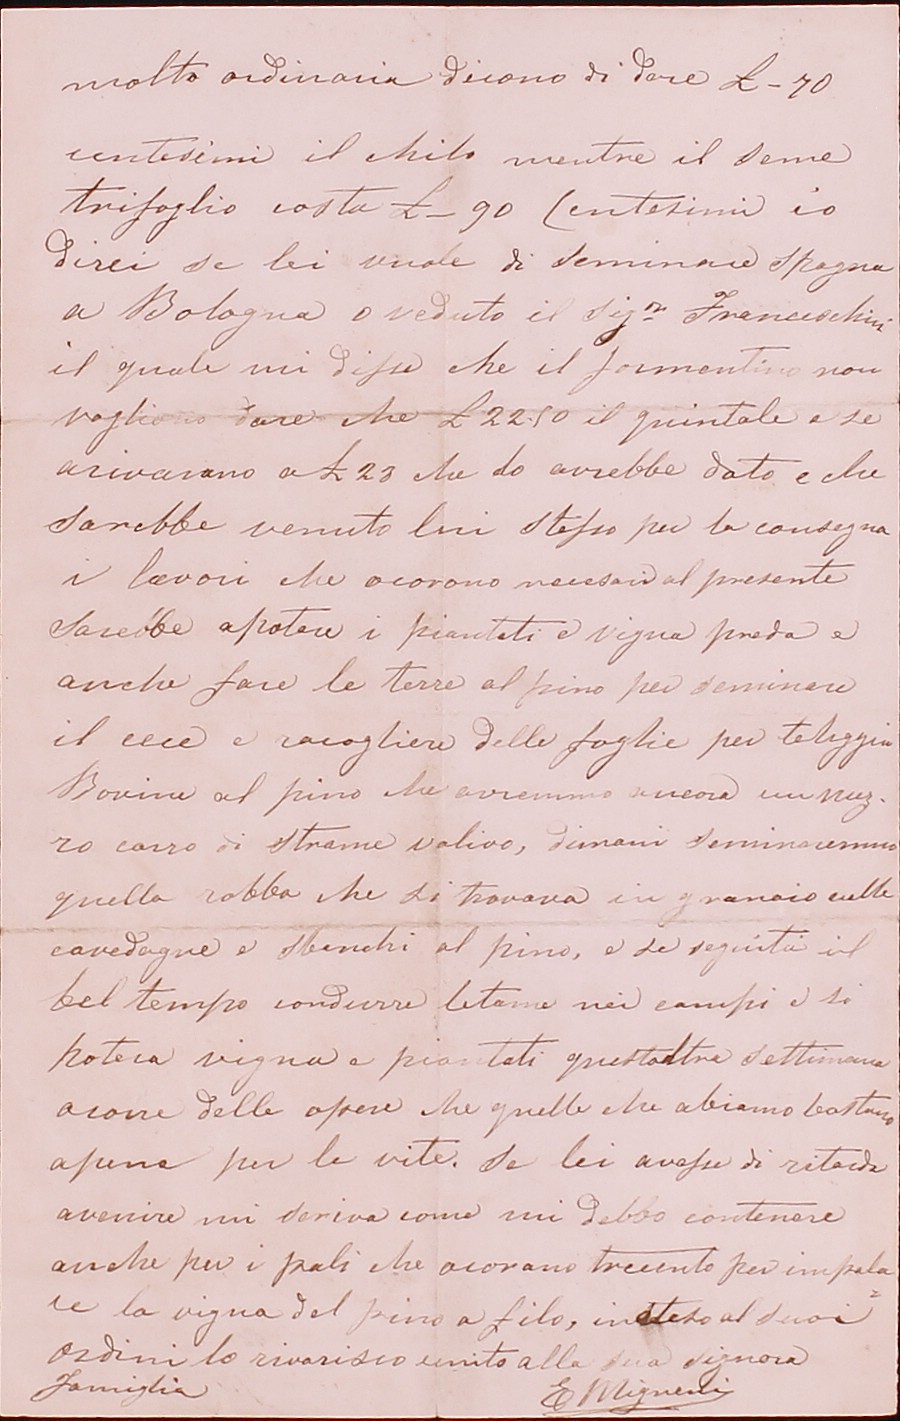 molto ordinaria dicono di dare £ - 70
centesimi il chilo mentre il seme
trifoglio costa £ - 90 Centesimi io
direi se lei vuole di seminare spagna
a Bologna o veduto il sigr Franceschini
il quale mi disse che il formentino non
vogliono dare che £ 22.50 il quintale e se
arivavano a £ 23 che lo avrebbe dato e che
sarebbe venuto lui stesso per la consegna
i lavori che ocorono necesari al presente
sarebbe apotare i piantati e vigna preda e
anche fare le terre al pino per seminare
il cece e racogliere delle foglie per
Bovine al pino che avremmo ancora un mez-
zo carro di strame valivo, dimani seminaremmo
quella robba che si trovava in granaio nelle
cavedagne e al pino, e se seguita il
bel tempo condurre letame nei campi e si
potera vigna e piantati questaltra settimana
acorre delle opere che quelle che abiamo bastano
apena per le vite. Se lei avesse di ritarda
avenire mi scriva come mi debbo contenere
anche per i pali che ocorano trecento per impala=
re la vigna del pino a filo, inteso al suoi
Ordini lo riverisco unito alla sua signora
Famiglia E Migneni